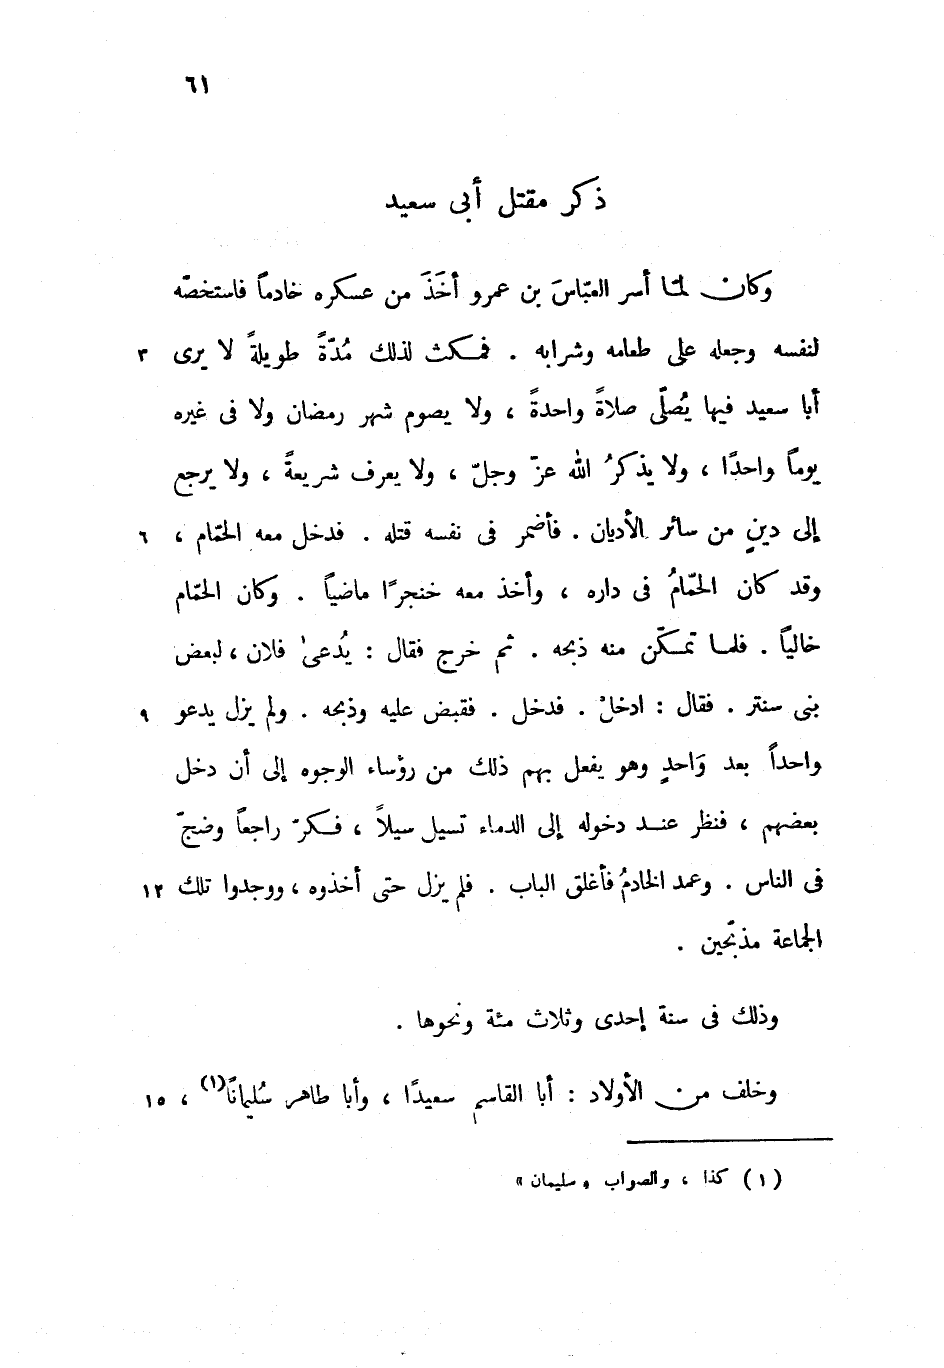 ٦١
ذكر مقتل أبى سعيد
وكان لمّا أسر العبّاسَ بن عمرو أخَذَ من عسكره خادماً فاستخصّه
لنفسه وجعله على طعامه وشرابه . فمكث لذلك مُدّةً طويلةً لا يرى ٣
أبا سعيد فيها يُصلّى صلاةً واحدةً ، ولا يصوم شهر رمضان ولا فى غيره
يوماً واحدًا ، ولا يذكرُ الله عزّ وجلّ ، ولا يعرف شريعةً ، ولا يرجع
إلى دينٍ من سائر الأديان . فأضمر فى نفسه قتله . فدخل معه الحمّام ، ٦
وقد كان الحمّامُ فى داره ، وأخذ معه خنجرًا ماضياً . وكان الحمّام
خالياً . فلما تمكّن منه ذبحه . ثم خرج فقال : يُدعىٰ فلان ، لبعض
بنى سنتر . فقال : ادخلْ . فدخل . فقبض عليه وذبحه . ولم يزل يدعو ٩
واحداً بعد وَاحدٍ وهو يفعل بهم ذلك من رؤساء الوجوه إلى أن دخل
بعضهم ، فنظر عند دخوله إلى الدماء تسيل سيلاً ، فكرّ راجعاً وضجّ
فى الناس . وعمد الخادمُ فأغلق الباب . فلم يزل حتى أخذوه ، ووجدوا تلك ١٢
الجماعة مذبّحين .
وذلك فى سنة إحدى وثلاث مئة ونحوها .
وخلف من الأولاد : أبا القاسم سعيدًا ، وأبا طاهر سُليمانًا(١) ، ١٥
(١) كذا ، والصواب « سليمان »